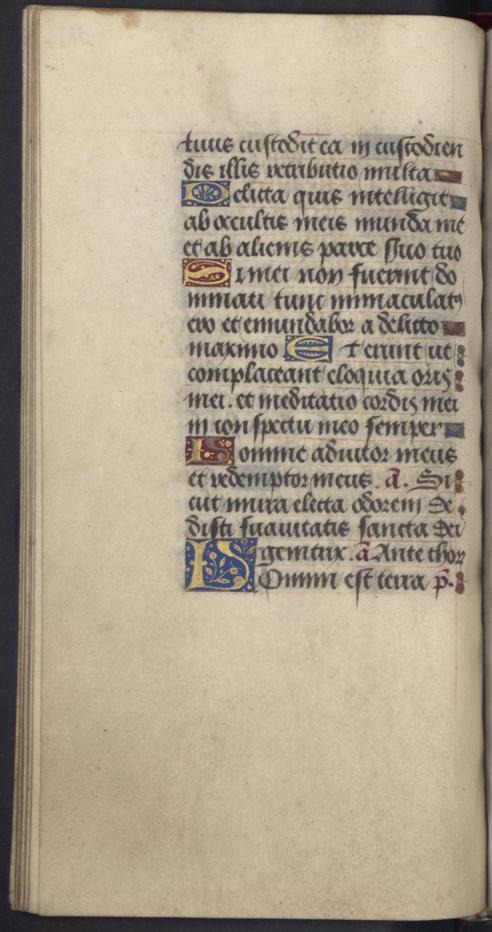 tuus custodit ea in custodien
dis illis retributio multa
Delicta quis intelligit
ab occultis meis munda me
et ab alienis parce s̃uo tuo
Si mei non fuerint do
minati tunc immaculatꝰ
ero et emundabor a delicto
maximo Et erunt ut
complaceant eloquia oris
mei. et meditatio cordis mei
in conspectu meo semper
Domine adiutor meus
et redemptor meus. a͞. Si
cut mirra electa odorem de
disti suauitatis sancta dei
genitrix. a͞ Ante thor
Domini est terra p͞.